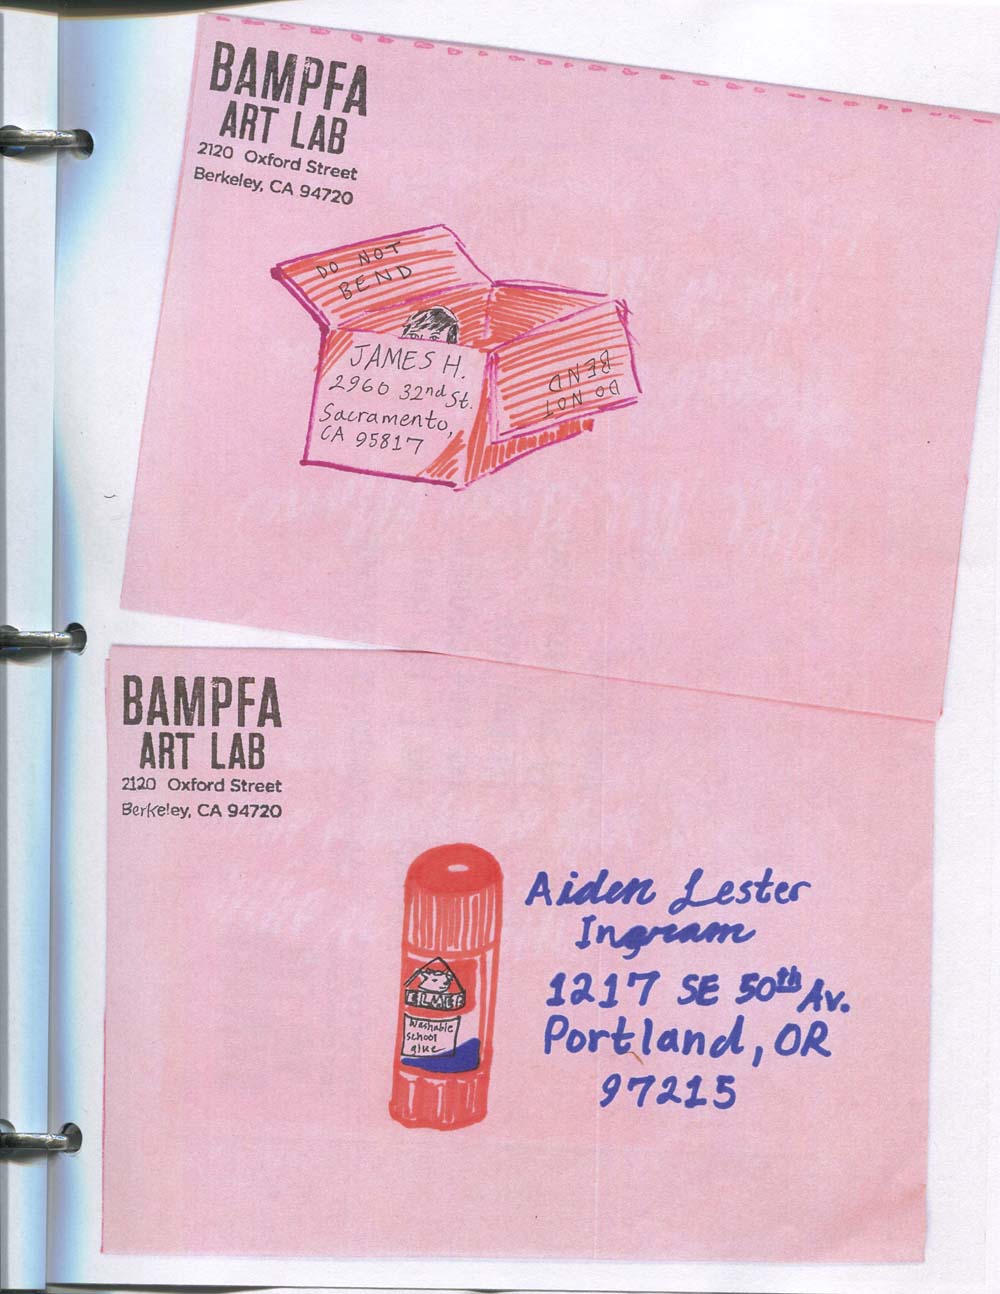 BAMPFA
ART LAB
2120 Oxford Street
Berkeley, CA 94720
DO NOT
BEND
JAMES H.
2960 32nd St.
Sacramento,
CA 95817
DO NOT
BEND
BAMPFA
ART LAB
2120 Oxford Street
Berkeley, CA 94720
ELMER
Washable
school
glue
Aiden Lester
Ingram
1217 SE 50th Av.
Portland, OR
97215